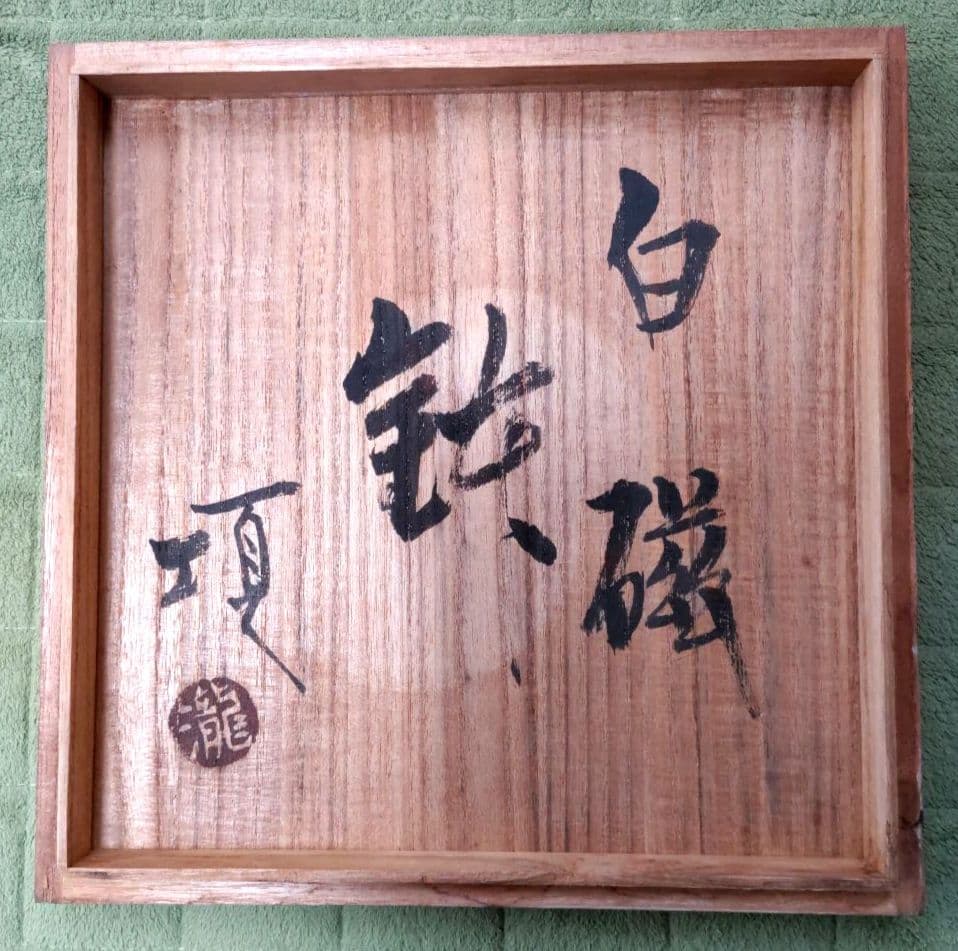 白磁
鉢
項
瀧